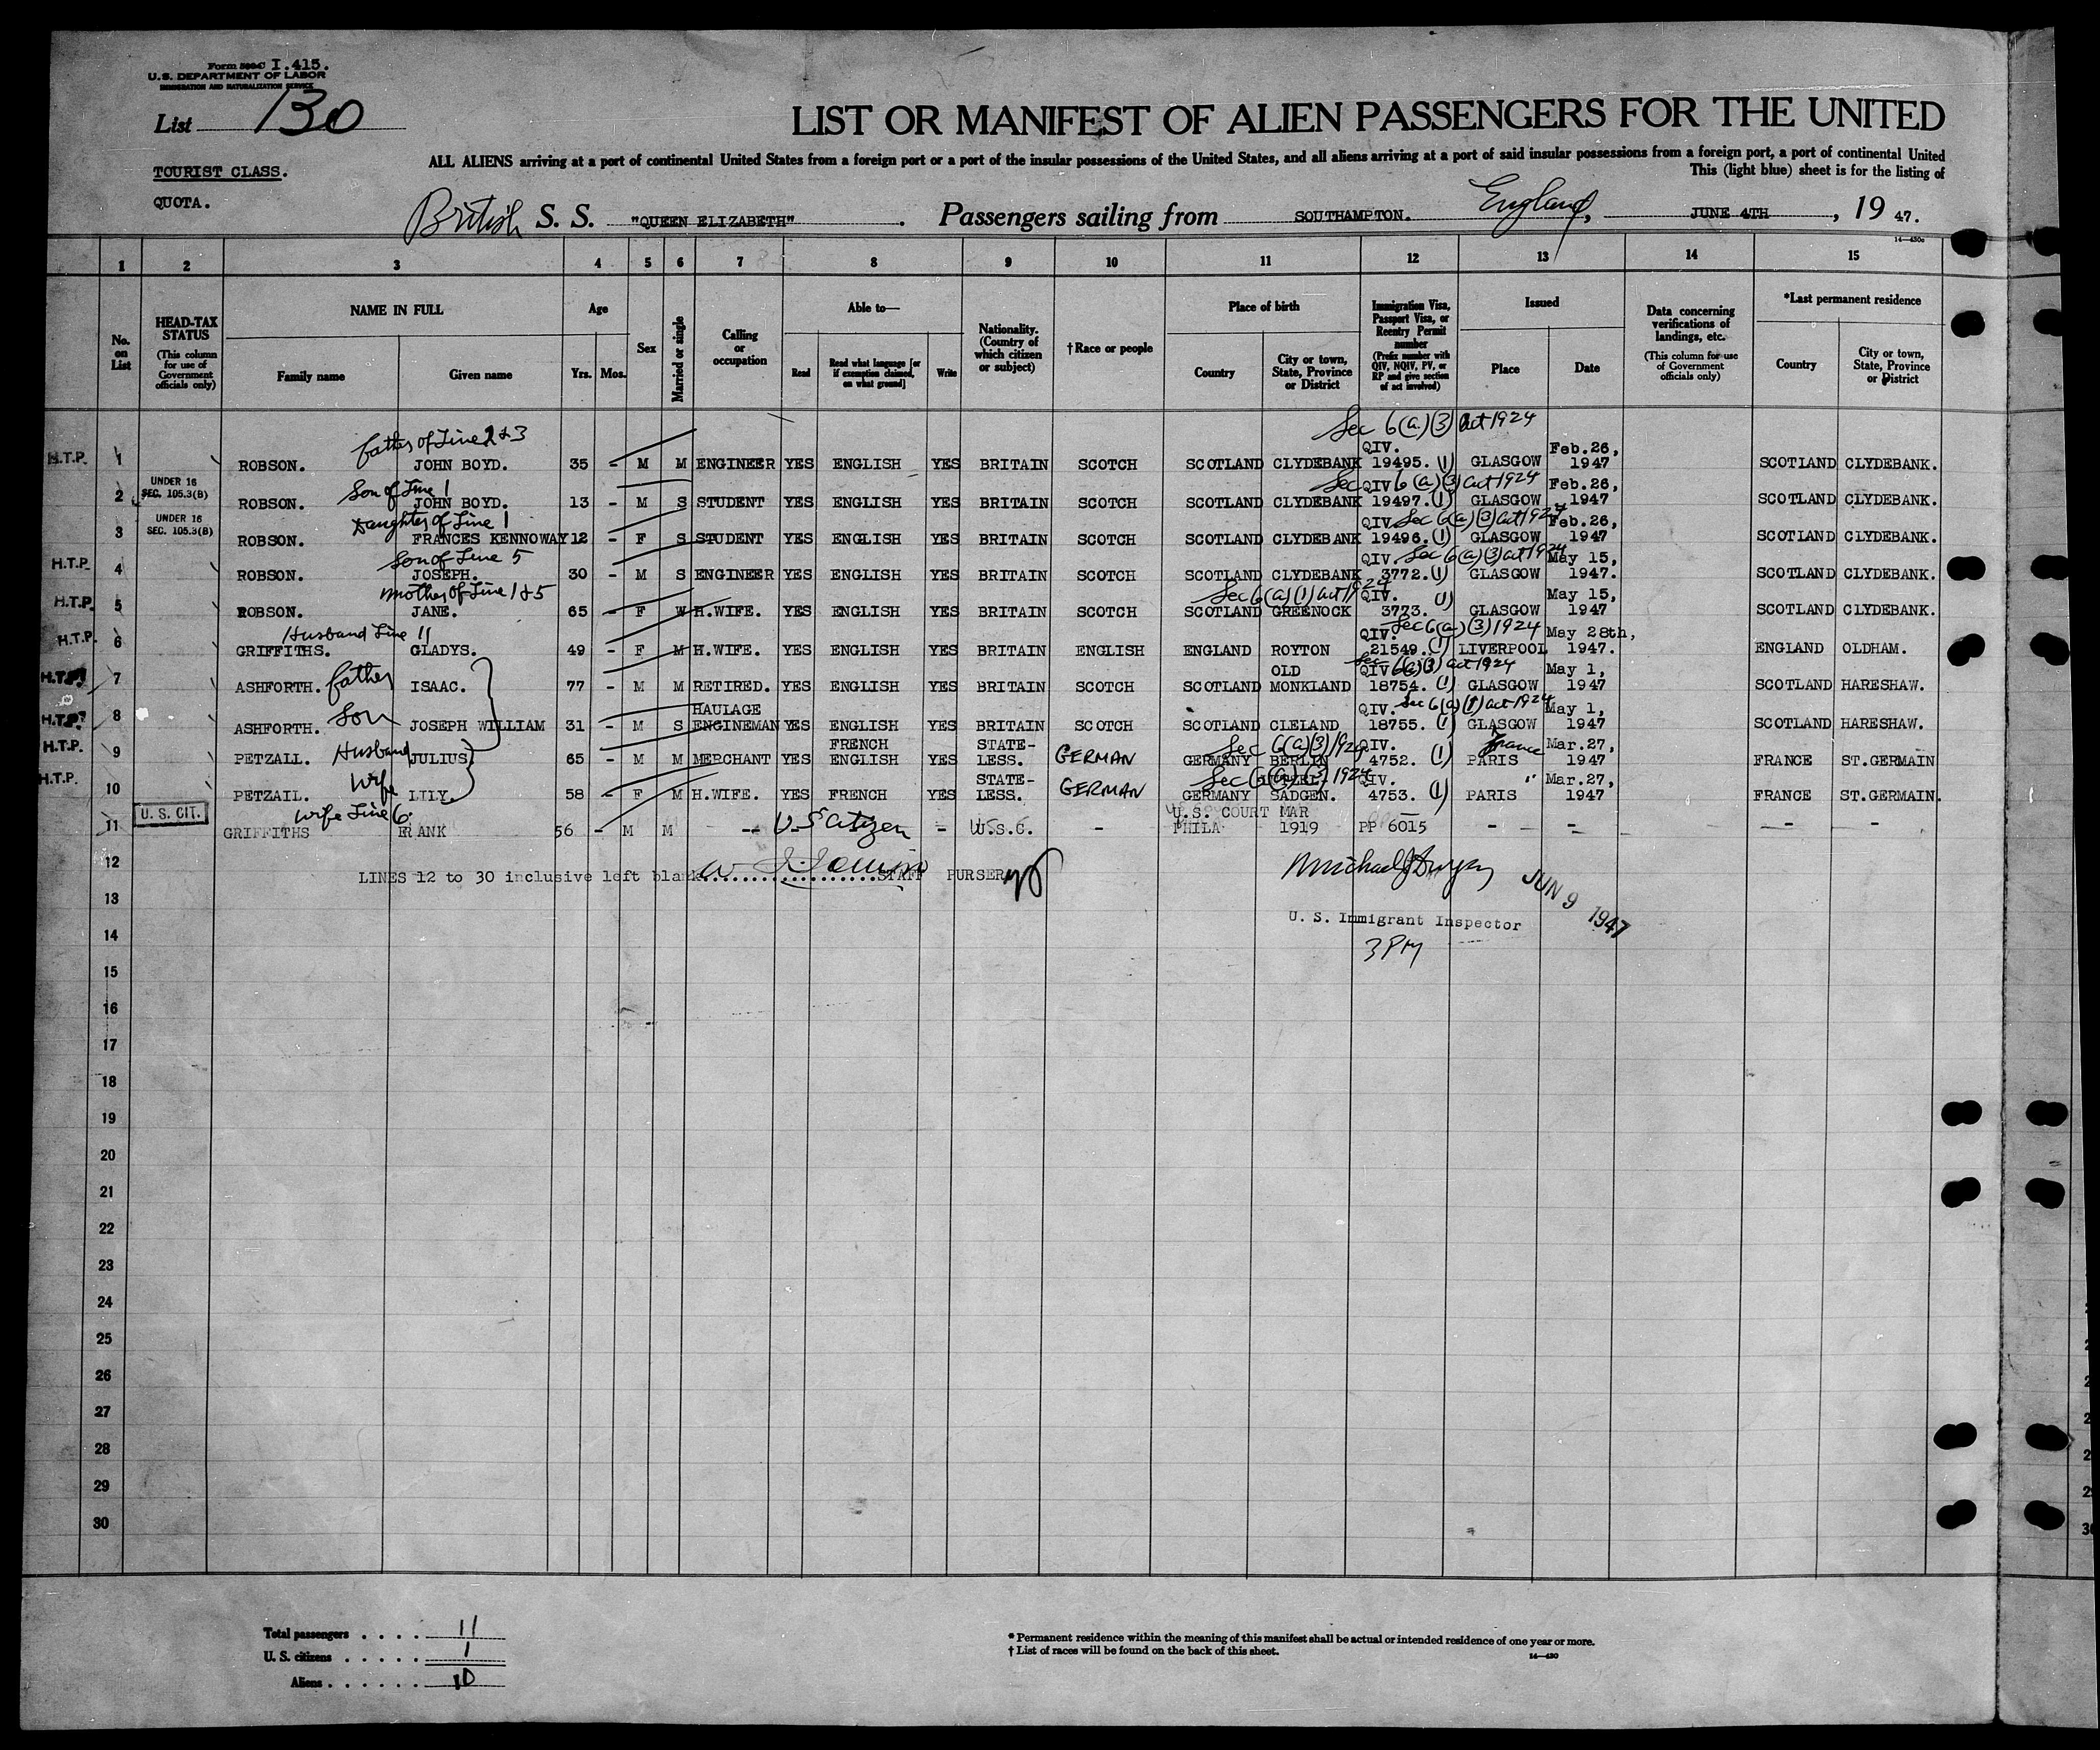 Form I.415.
U.S. DEPARTMENT OF LABOR
IMMIGRATION AND NATURALIZATION SERVICE
List 130
LIST OR MANIFEST OF ALIEN PASSENGERS FOR THE UNITED
ALL ALIENS arriving at a port of continental United States from a foreign port or a port of the insular possessions of the United States, and all aliens arriving at a port of said insular possessions from a foreign port, a port of continental United
This (light blue) sheet is for the listing of
TOURIST CLASS.
QUOTA.
British S. S. "QUEEN ELIZABETH". Passengers sailing from SOUTHAMPTON. England, JUNE 4TH, 19 47.
14—430c
1 2 3 4 5 6 7 8 9 10 11 12 13 14 15
No. on List
HEAD-TAX STATUS (This column for use of Government officials only)
NAME IN FULL
Family name Given name
Age
Yrs. Mos.
Sex
Married or single
Calling or occupation
Able to—
Read Read what language [or if exemption claimed, on what ground] Write
Nationality. (Country of which citizen or subject)
†Race or people
Place of birth
Country City or town, State, Province or District
Immigration Visa, Passport Visa, or Reentry Permit number (Prefix number with QIV, NQIV, PV, or RP and give section of act involved)
Issued
Place Date
Data concerning verifications of landings, etc. (This column for use of Government officials only)
*Last permanent residence
Country City or town, State, Province or District
father of Line 2 & 3 Sec 6(a)(3) Act 1924
H.T.P. 1 ROBSON. JOHN BOYD. 35 - M M ENGINEER YES ENGLISH YES BRITAIN SCOTCH SCOTLAND CLYDEBANK QIV. 19495. (1) GLASGOW Feb.26, 1947 SCOTLAND CLYDEBANK.
Son of Line 1 Sec 6(a)(3) act 1924
2 UNDER 16 SEC. 105.3(B) ROBSON. JOHN BOYD. 13 - M S STUDENT YES ENGLISH YES BRITAIN SCOTCH SCOTLAND CLYDEBANK QIV 19497. (1) GLASGOW Feb.26, 1947 SCOTLAND CLYDEBANK.
Daughter of Line 1 Sec 6(a)(3) act 1924
3 UNDER 16 SEC. 105.3(B) ROBSON. FRANCES KENNOWAY 12 - F S STUDENT YES ENGLISH YES BRITAIN SCOTCH SCOTLAND CLYDEBANK QIV 19496. (1) GLASGOW Feb.26, 1947 SCOTLAND CLYDEBANK.
Son of Line 5 Sec 6(a)(3) act 1924
H.T.P. 4 ROBSON. JOSEPH. 30 - M S ENGINEER YES ENGLISH YES BRITAIN SCOTCH SCOTLAND CLYDEBANK QIV 3772. (1) GLASGOW May 15, 1947. SCOTLAND CLYDEBANK.
Mother of Line 1 & 5 Sec 6(a)(1) act 1924
H.T.P. 5 ROBSON. JANE. 65 - F W H.WIFE. YES ENGLISH YES BRITAIN SCOTCH SCOTLAND GREENOCK QIV. 3773. (1) GLASGOW May 15, 1947 SCOTLAND CLYDEBANK.
Husband Line 11 Sec 6(a)(3) 1924
H.T.P. 6 GRIFFITHS. GLADYS. 49 - F M H.WIFE. YES ENGLISH YES BRITAIN ENGLISH ENGLAND ROYTON QIV. 21549. (1) LIVERPOOL May 28th, 1947. ENGLAND OLDHAM.
Sec 6(a)(3) act 1924
H.T.P. 7 ASHFORTH. father ISAAC. 77 - M M RETIRED. YES ENGLISH YES BRITAIN SCOTCH SCOTLAND OLD MONKLAND QIV 18754. (1) GLASGOW May 1, 1947 SCOTLAND HARESHAW.
Sec 6(a)(1) act 1924
H.T.P. 8 ASHFORTH. Son JOSEPH WILLIAM 31 - M S HAULAGE ENGINEMAN YES ENGLISH YES BRITAIN SCOTCH SCOTLAND CLELAND QIV. 18755. (1) GLASGOW May 1, 1947 SCOTLAND HARESHAW.
Sec 6(a)(3) 1924
H.T.P. 9 PETZALL. Husband JULIUS 65 - M M MERCHANT YES FRENCH ENGLISH YES STATE-LESS. GERMAN GERMANY BERLIN QIV. 4752. (1) PARIS France Mar.27, 1947 FRANCE ST.GERMAIN
Sec 6(a)(3) 1924
H.T.P. 10 PETZALL. Wife LILY. 58 - F M H.WIFE. YES FRENCH YES STATE-LESS. GERMAN GERMANY SADGEN. QIV. 4753. (1) PARIS " Mar.27, 1947 FRANCE ST.GERMAIN.
wife Line 6
11 U. S. CIT. GRIFFITHS FRANK 56 - M M -- U.S citizen - U.S.C. - U.S. COURT MAR PHILA 1919 PP 6015 - - - -
12
LINES 12 to 30 inclusive left blank STAFF PURSER
13
U. S. Immigrant Inspector JUN 9 1947
14
3 PM
15
16
17
18
19
20
21
22
23
24
25
26
27
28
29
30
Total passengers . . . . 11
U. S. citizens . . . . . 1
Aliens . . . . . . 10
* Permanent residence within the meaning of this manifest shall be actual or intended residence of one year or more.
† List of races will be found on the back of this sheet.
14—430